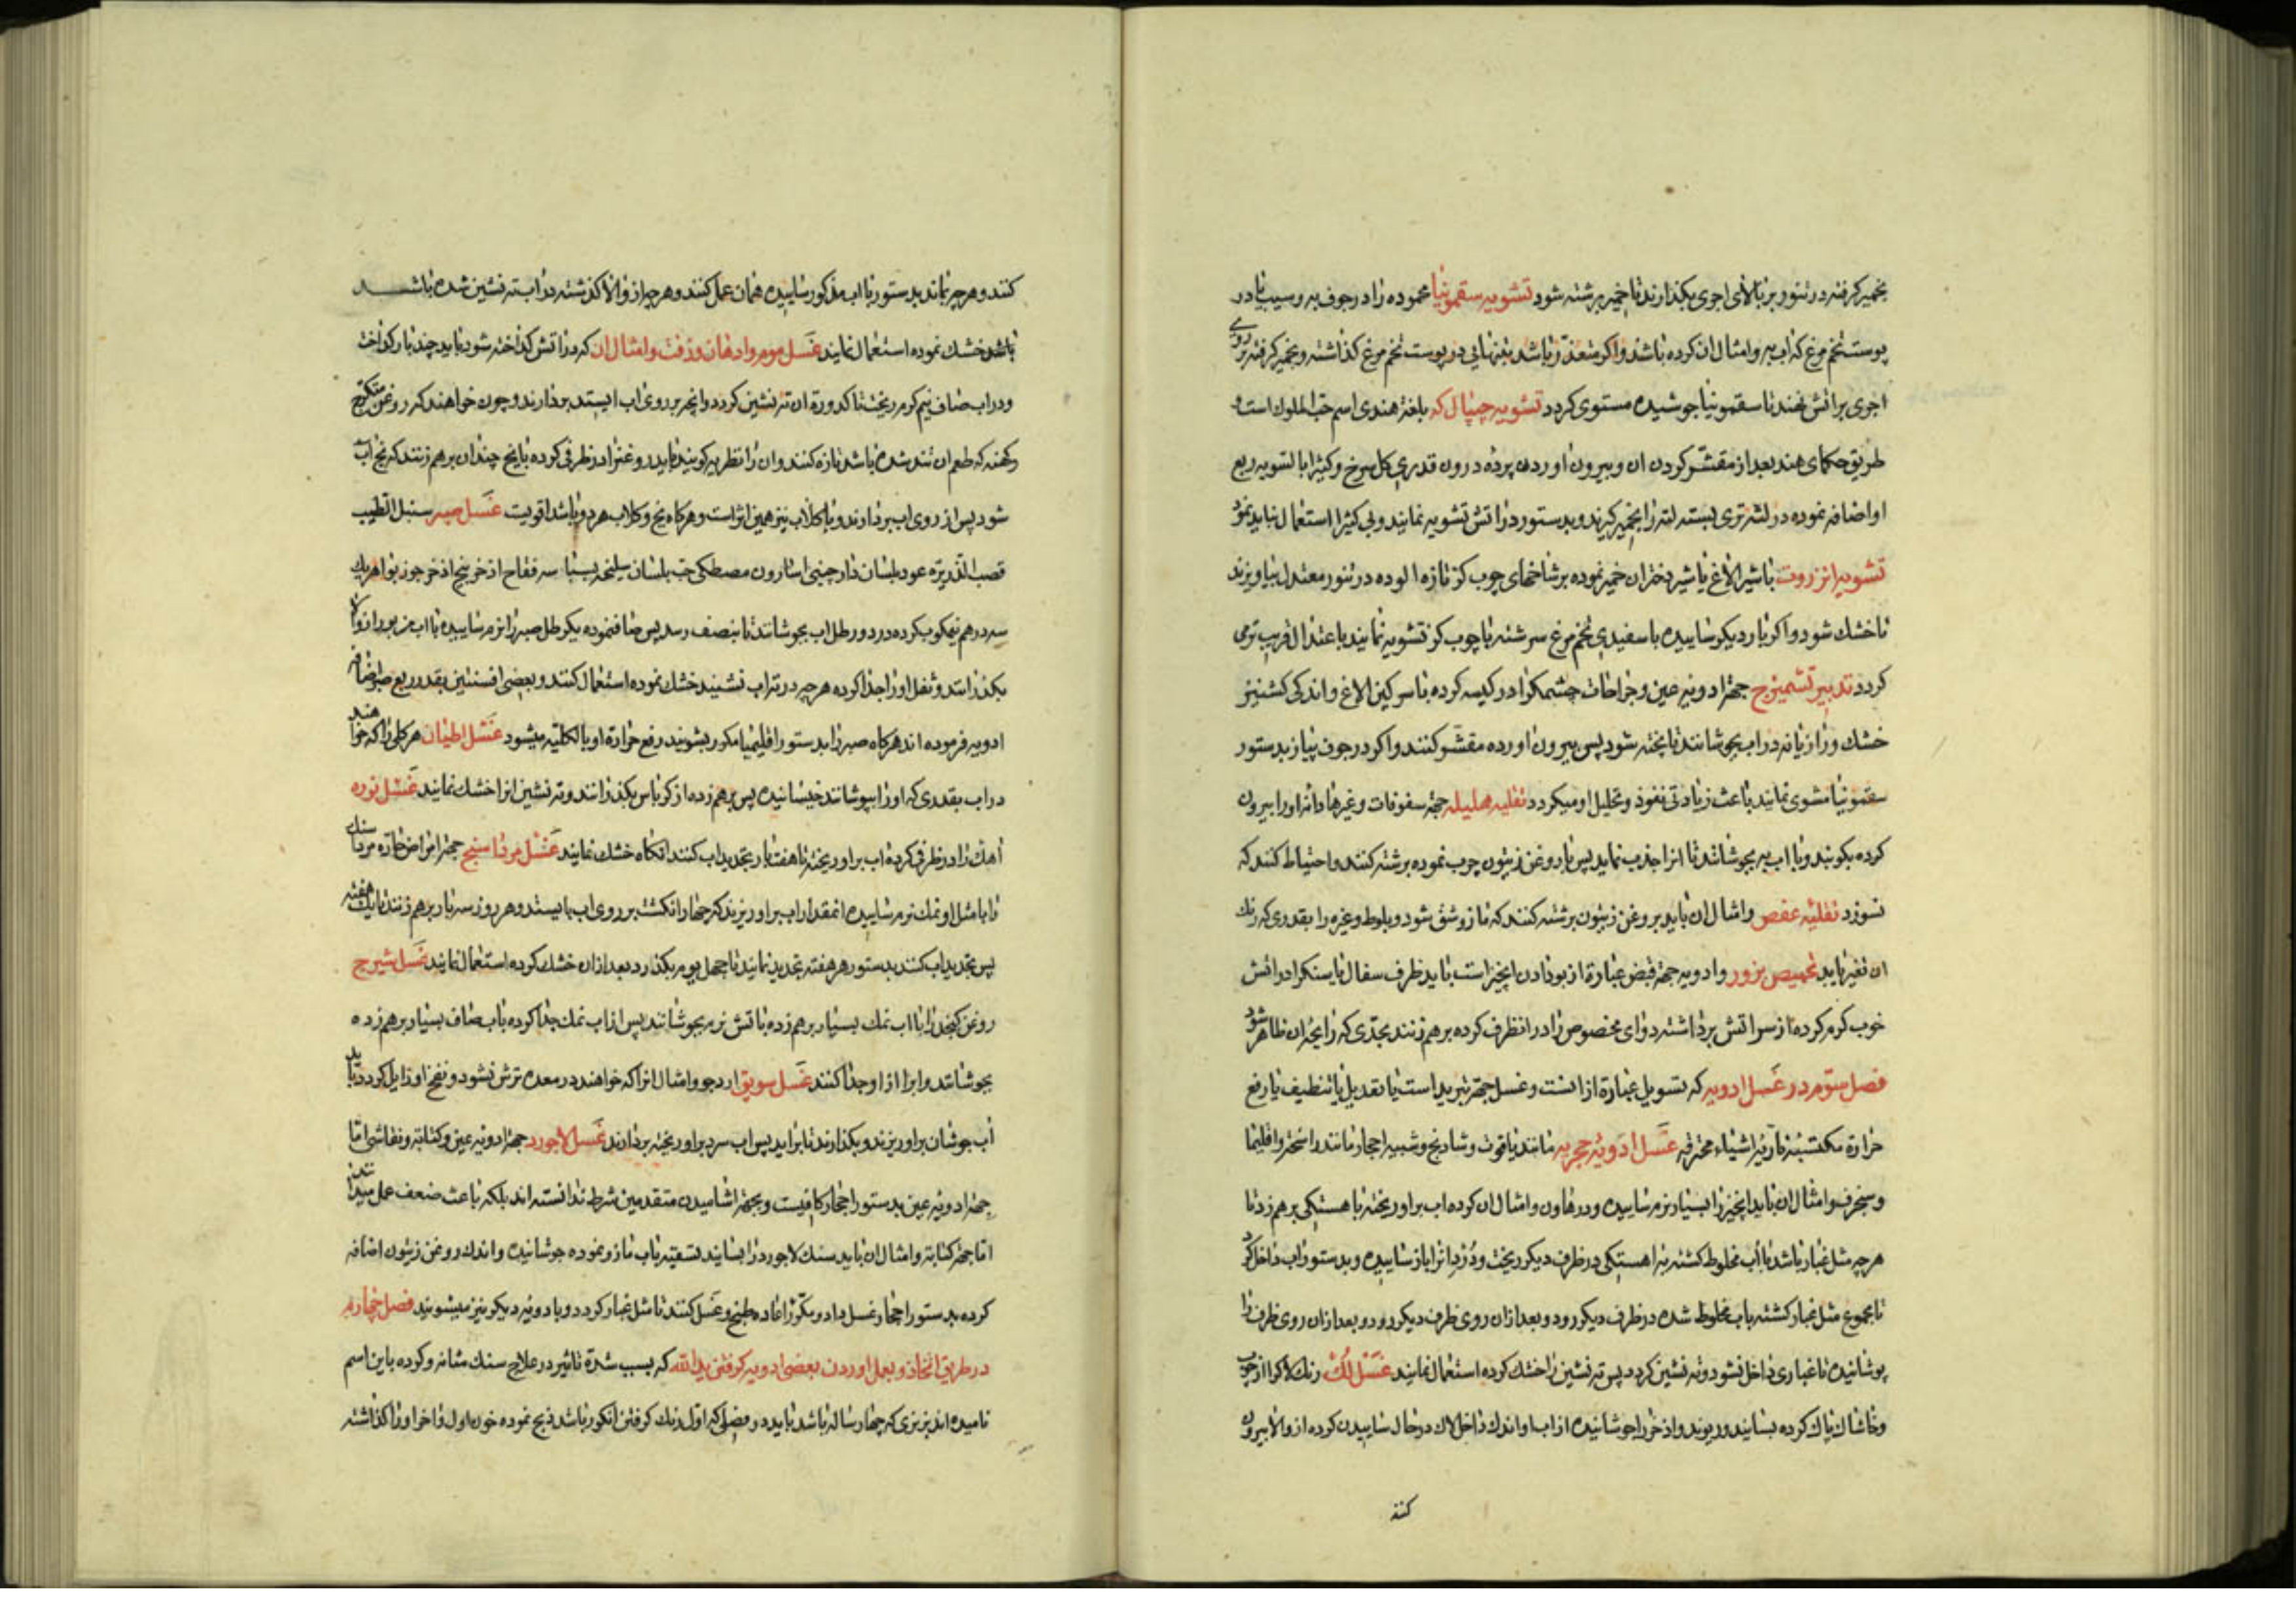 بخمیر کرفته در تنور بر بالای اجری بکذارند تا خمیر برشته شود تشویه سقمونیا محموده را در جوف به و سیب یا در
پوست تخم مرغ که اب به و امثال ان کرده باشند و اکر متعذر باشد بتنهائی در پوست تخم مرغ کذاشته و بخمیر کرفته بر روی
اجری بر اتش نهند تا سقمونیا جوشیده مستوی کردد تشویه چیپال که بلغة هندی اسم حب الملوک است و
طریق حکمای هند بعد از مقشر کردن ان و بیرون اوردن پرده درون قدری کل سرخ و کثیرا بالسویه ربع
او اضافه نموده در لته تری بسته لته را بخمیر کیرند و بدستور در اتش تشویه نمایند و بی کثیرا استعمال نباید نمود
تشویه انزروت با شیر الاغ یا شیر دختران خمیر نموده بر شاخهای چوب کز تازه الوده در تنور معتدل بیاویزند
تا خشک شود و اکر بار دیکر ساییده با سفیدی تخم مرغ سرشته با چوب کز تشویه نمایند باعتدال قریب تر می
کردد تدبیر تشمیزج جهة ادویه عین و جراحات چشمک را در کیسه کرده با سرکین الاغ و اندکی کشنیز
خشک و رازیانه در اب بجوشانند تا پخته شود پس بیرون اورده مقشر کنند و اکر در جوف پیاز بدستور
سقمونیا مشوی نمایند باعث زیادتی نفوذ و تحلیل او میکردد تقلیه هلیله جهة سفوفات و غیرها دانه او را بیرون
کرده بکوبند و با اب به بجوشانند تا انرا جذب نماید پس با روغن زیتون چرب نموده برشته کنند و احتیاط کنند که
نسوزد تقلیه عفص و امثال ان باید بروغن زیتون برشته کنند که مازو شق شود و بلوط و غیره را بقدری که رنک
ان تغیر یابد تحمیص بزور و ادویه جهة قبض عبارة از بو دادن انچیز است باید ظرف سفال یا سنک را در اتش
خوب کرم کرده از سر اتش برداشته دوای مخصوص را در انظرف کرده بر هم زنند بحدی که رایحه ان ظاهر شود
فصل سوم در غسل ادویه که تسویل عبارة از انست و غسل جهة تبرید است یا تعدیل یا تنظیف یا رفع
حرارة مکتسبه ناریه اشیاء محترقه غسل ادویه حجریه مانند یاقوت و شادنج و شبیه احجار مانند راسخت و اقلیما
و سنجرف و امثال ان باید انچیز را بسیار نرم ساییده و در هاون و امثال ان کرده اب بر او ریخته باهستکی بر هم زد تا
هر چه مثل غبار باشد با اب مخلوط کشته به اهستکی در ظرف دیکر ریخت و درد انرا باز ساییده و بدستور اب داخل کرد
تا مجموع مثل غبار کشته باب مخلوط شده در ظرف دیکر رود و بعد از ان روی ظرف دیکر رود و بعد از ان روی ظرف را
پوشانیده تا غباری داخل نشود و ته نشین کردد پس ته نشین را خشک کرده استعمال نمایند غسل لک رنک لاک را از چوب
و خاشاک پاک کرده بسایند و ریوند و اذخر را جوشانیده از اب او اندک داخل لاک در حال ساییدن کرده از والا بیرون
کنند
کنند و هر چه بماند بدستور با اب مذکور ساییده همان عمل کنند و هر چه از والا کذشته در اب ته نشین شده باشد
باشد خشک نموده استعمال نمایند غسل موم و ادهان و زفت و امثال ان که در اتش کداخته شود باید چند بار کداخت
و در اب صاف نیم کرم ریخت تا کدورة ان ته نشین کردد و انچه بر روی اب ایستد بردارند و چون خواهند که روغن متکرج
و کهنه که طعم ان تند شده باشد تازه کنند و ان را تطریه کویند باید روغنرا در ظرفی کرده با یخ چندان برهم زنند که یخ اب
شود پس از روی اب بردارند و با کلاب نیز همین اثر است و هر کاه یخ و کلاب هر دو باشد اقویست غسل صبر سنبل الطیب
قصب الذریره عود بلسان دارچینی اسارون مصطکی حب بلسان سلیخه بسباسه فقاح اذخر بیخ اذخر جوزبوا هر یک
سه درهم نیمکوب کرده در دو رطل اب بجوشانند تا بنصف رسد پس صاف نموده یکرطل صبر را نرم ساییده با اب مزبور از والا
بکذرانند و ثفل او را جدا کرده هر چه در ته اب نشیند خشک نموده استعمال کنند و بعضی افسنتین بقدر ربع صبر اضافه
ادویه فرموده اند هر کاه صبر را بدستور اقلیمیا مکرر بشویند رفع حرارة او بالکلیه میشود غسل اطیان هر کلی را که خواهند
در اب بقدری که او را بپوشانند خیسانیده پس برهم زده از کرباس بکذرانند و ته نشین انرا خشک نمایند غسل نوره
آهک را در ظرفی کرده اب بر او ریخته تا هفت بار تجدید اب کنند انکاه خشک نمایند غسل مرداسنج جهة امراض حاره مرداسنک
را با مثل او نمک نرم ساییده انمقدار اب بر او ریزند که چهار انکشت بر روی اب بایستد و هر روز سه بار برهم زنند تا یکهفته
پس تجدید اب کنند بدستور هر هفته تجدید نمایند تا چهل یوم بکذرد بعد از ان خشک کرده استعمال نمایند غسل شیرج
روغن کنجد را با اب نمک بسیار برهم زده با تش نرم بجوشانند پس از اب نمک جدا کرده باب صاف بسیار برهم زده
بجوشانند و ابرا از او جدا کنند غسل سویق ارد جو و امثال انرا که خواهند در معده ترش نشود و نفخ او زایل کردد باید
آب جوشان بر او ریزند و بکذارند تا براید پس اب سرد بر او ریخته بردارند غسل لاجورد جهة ادویه عین و کتابة و نقاشی اما
جهة ادویه عین بدستور احجار کافیست و بجهة اشامیدن متقدمین شرط ندانسته اند بلکه باعث ضعف عمل میدانند
اما جهة کتابة و امثال ان باید سنک لاجورد را بسایند تسقیه باب مازو نموده جوشانیده و اندک روغن زیتون اضافه
کرده بدستور احجار غسل داد و مکرر اعاده طبخ و غسل کنند تا مثل غبار کردد و با ادویه دیکر نیز میشویند فصل چهارم
در طریق اتخاذ و بعمل اوردن بعضی ادویه کرفتن ید الله که بسبب شدة تاثیر در علاج سنک مثانه و کرده باین اسم
نامیده اند بز نری که چهار ساله باشد باید در فصلی که اول رنک کرفتن انکور باشد ذبح نموده خون اول و اخر او را کذاشته